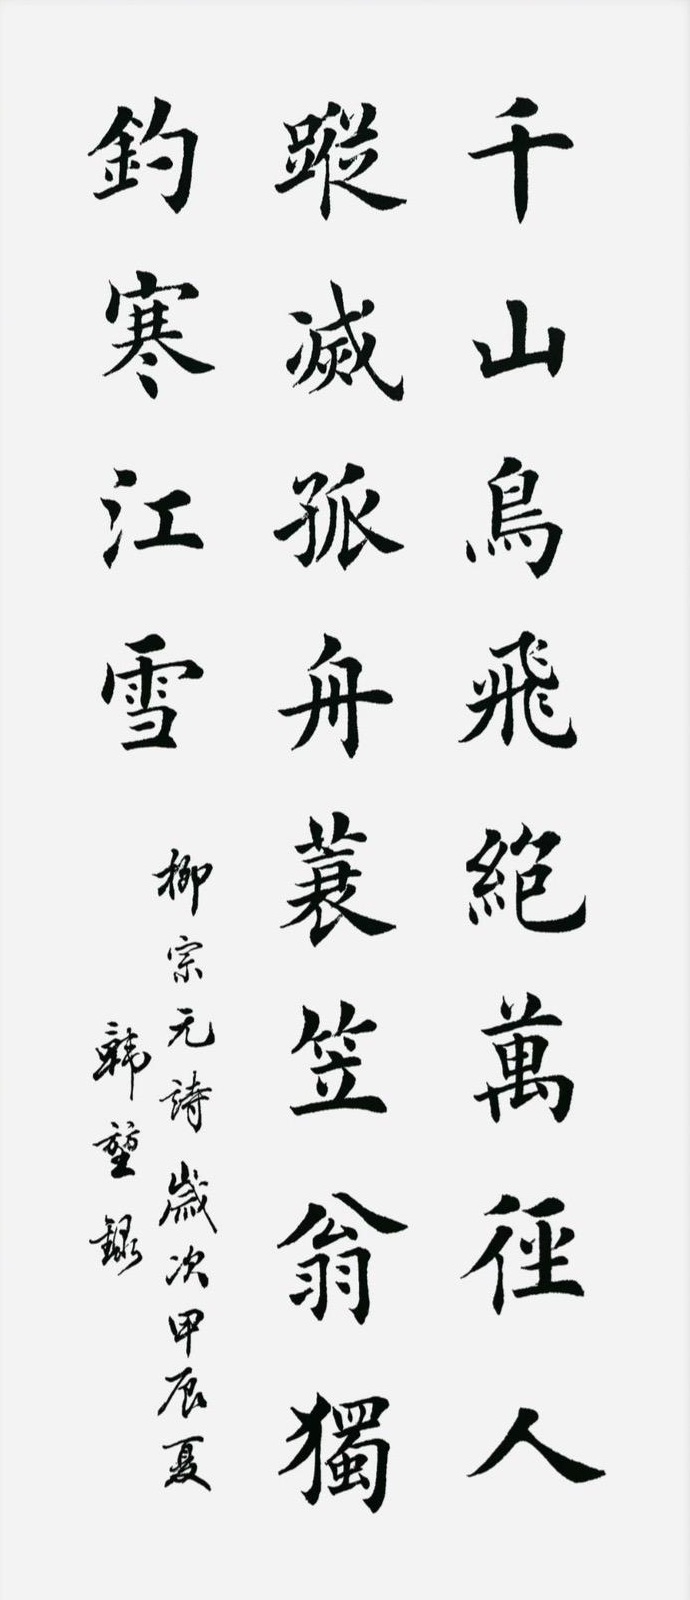 千山鳥飛絕萬徑人
蹤滅孤舟蓑笠翁獨
釣寒江雪
柳宗元詩歲次甲辰夏
韓堃錄